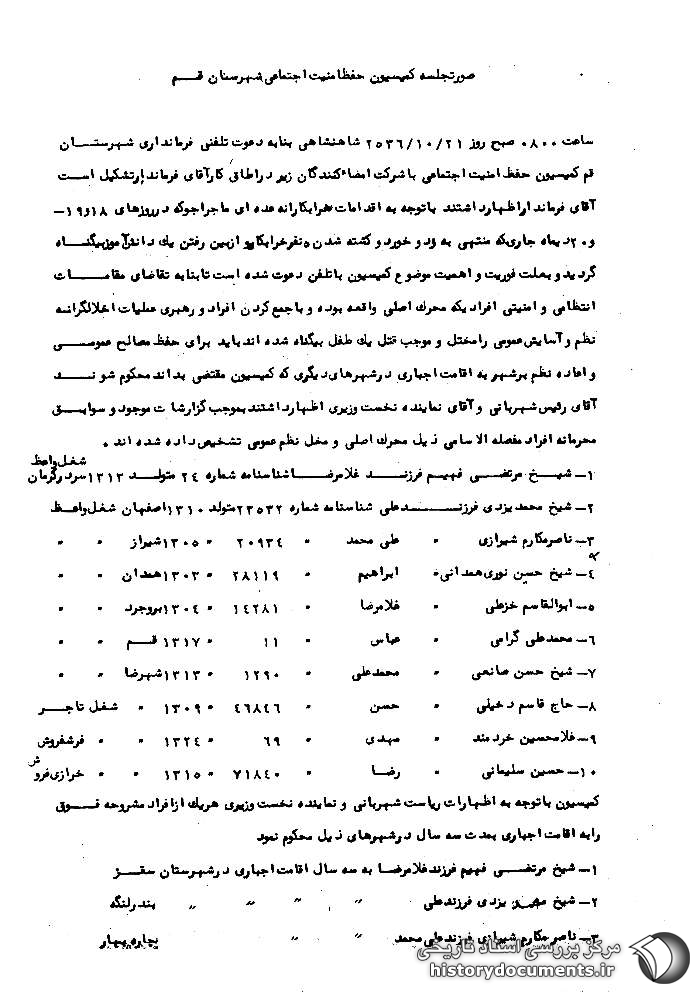 صورتجلسه کمیسیون حفظ امنیت اجتماعی شهرستان قـــم
ساعت ۰۸۰۰ صبح روز ۲۵۳۶/۱۰/۲۱ شاهنشاهی بنابه دعوت تلفنی فرمانداری شهرستـــان
قم کمیسیون حفظ امنیت اجتماعی با شرکت امضاء کنندگان زیر در اطاق کار آقای فرماندار تشکیل است
آقای فرماندار اظهار داشتند با توجه به اقدامات خرابکارانه عده ای ماجراجو که در روزهای ۱۸و۱۹ـ
و۲۰ دیماه جاری که منتهی به زد و خورد و کشته شدن ۵ نفر خرابکار و از بین رفتن یک دانش آموز بیگناه
گردید و بعلت فوریت و اهمیت موضوع کمیسیون با تلفن دعوت شده است تا بنا به تقاضای مقامـــات
انتظامی و امنیتی افرادیکه محرک اصلی واقعه بوده و با جمع کردن افراد و رهبری عملیات اخلالگرانـه
نظم و آسایش عمومی را مختل و موجب قتل یک طفل بیگناه شده اند باید برای حفظ مصالح عمومــی
و اعاده نظم بر شهر به اقامت اجباری در شهرهای دیگری که کمیسیون مقتضی بداند محکوم شونـــد
آقای رئیس شهربانی و آقای نماینده نخست وزیری اظهار داشتند بموجب گزارشات موجود و سوابـــق
محرمانه افراد مفصله الاسامی ذیل محرک اصلی و مخل نظم عمومی تشخیص داده شده اند ۰
۱ـ شیـخ مرتضــی فهیـم فرزنـــد غلامرضـا شناسنامه شماره ۲۴ متولـــد ۱۳۱۳ سردر کرمان شغل واعظ
۲ـ شیخ محمد یزدی فرزنـــد علی شناسنامه شماره ۲۳۵۳۲ متولد ۱۳۱۰ اصفهان شغل واعظ
۳ـ ناصر مکارم شیرازی " علی محمد " ۲۰۹۳۴ " ۱۳۰۵ شیراز " "
۴ـ شیخ حسن نوری همدانی " ابراهیم " ۲۸۱۱۹ " ۱۳۰۳ همدان " "
۵ـ ابوالقاسم خزعلی " غلامرضا " ۱۴۲۸۱ " ۱۳۰۴ بروجرد " "
۶ـ محمدعلی گرامی " عباس " ۱۱ " ۱۳۱۷ قـــم " "
۷ـ شیخ حسن صانعی " محمدعلی " ۱۲۹۰ " ۱۳۱۳ شهرضا " "
۸ـ حاج قاسم دخیلی " حسن " ۴۶۸۴۶ " ۱۳۰۹ " شغل تاجـــر
۹ـ غلامحسین خردمند " مهدی " ۶۹ " ۱۳۲۴ " " فرشفروش
۱۰ـ حسین سلیمانی " رضا " ۷۱۸۴۰ " ۱۳۱۵ " " خرازی فروش
کمیسیون با توجه به اظهارات ریاست شهربانی و نماینده نخست وزیری هریک از افراد مشروحه فـــوق
را به اقامت اجباری بمدت سه سال در شهرهای ذیل محکوم نمود
۱ـ شیخ مرتضــی فهیم فرزند غلامرضا به سه سال اقامت اجباری در شهرستان سقـــز
۲ـ شیخ محمد یزدی فرزند علی " " " " بندر لنگه
۳ـ ناصر مکارم شیرازی فرزند علی محمد " " چاه بهار
مرکز بررسی اسناد تاریخی
historydocuments.ir